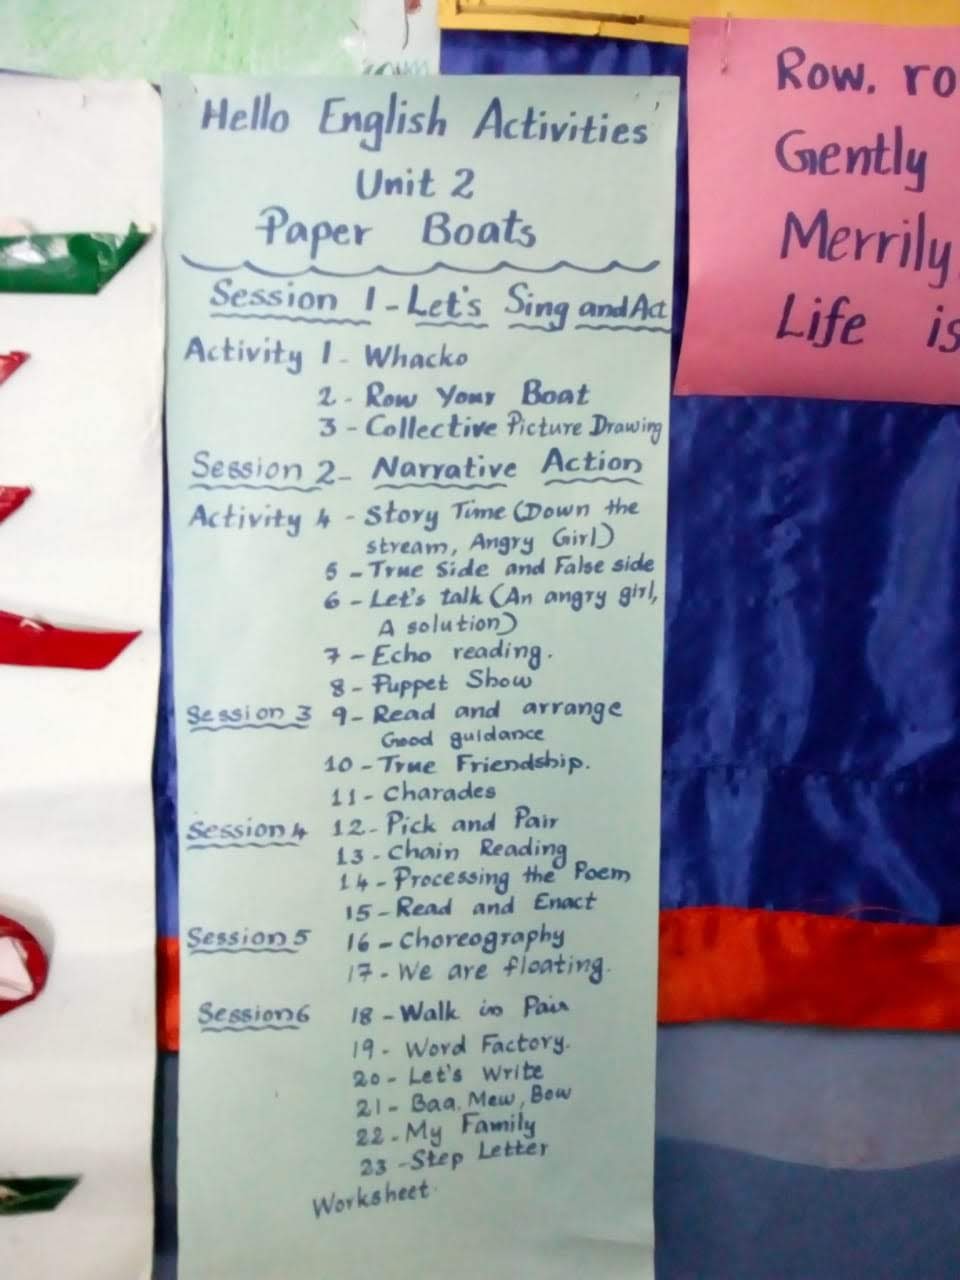 Hello English Activities
Unit 2
Paper Boats
Session 1 - Let's Sing and Act
Activity 1 - Whacko
2 - Row Your Boat
3 - Collective Picture Drawing
Session 2 - Narrative Action
Activity 4 - Story Time (Down the
stream, Angry Girl)
5 - True Side and False side
6 - Let's talk (An angry girl,
A solution)
7 - Echo reading.
8 - Puppet Show
Session 3 9 - Read and arrange
Good guidance
10 - True Friendship.
11 - Charades
Session 4 12 - Pick and Pair
13 - Chain Reading
14 - Processing the Poem
15 - Read and Enact
Session 5 16 - Choreography
17 - We are floating.
Session 6 18 - Walk in Pair
19 - Word Factory.
20 - Let's Write
21 - Baa, Mew, Bow
22 - My Family
23 - Step Letter
Worksheet.
Row, ro
Gently
Merrily,
Life is